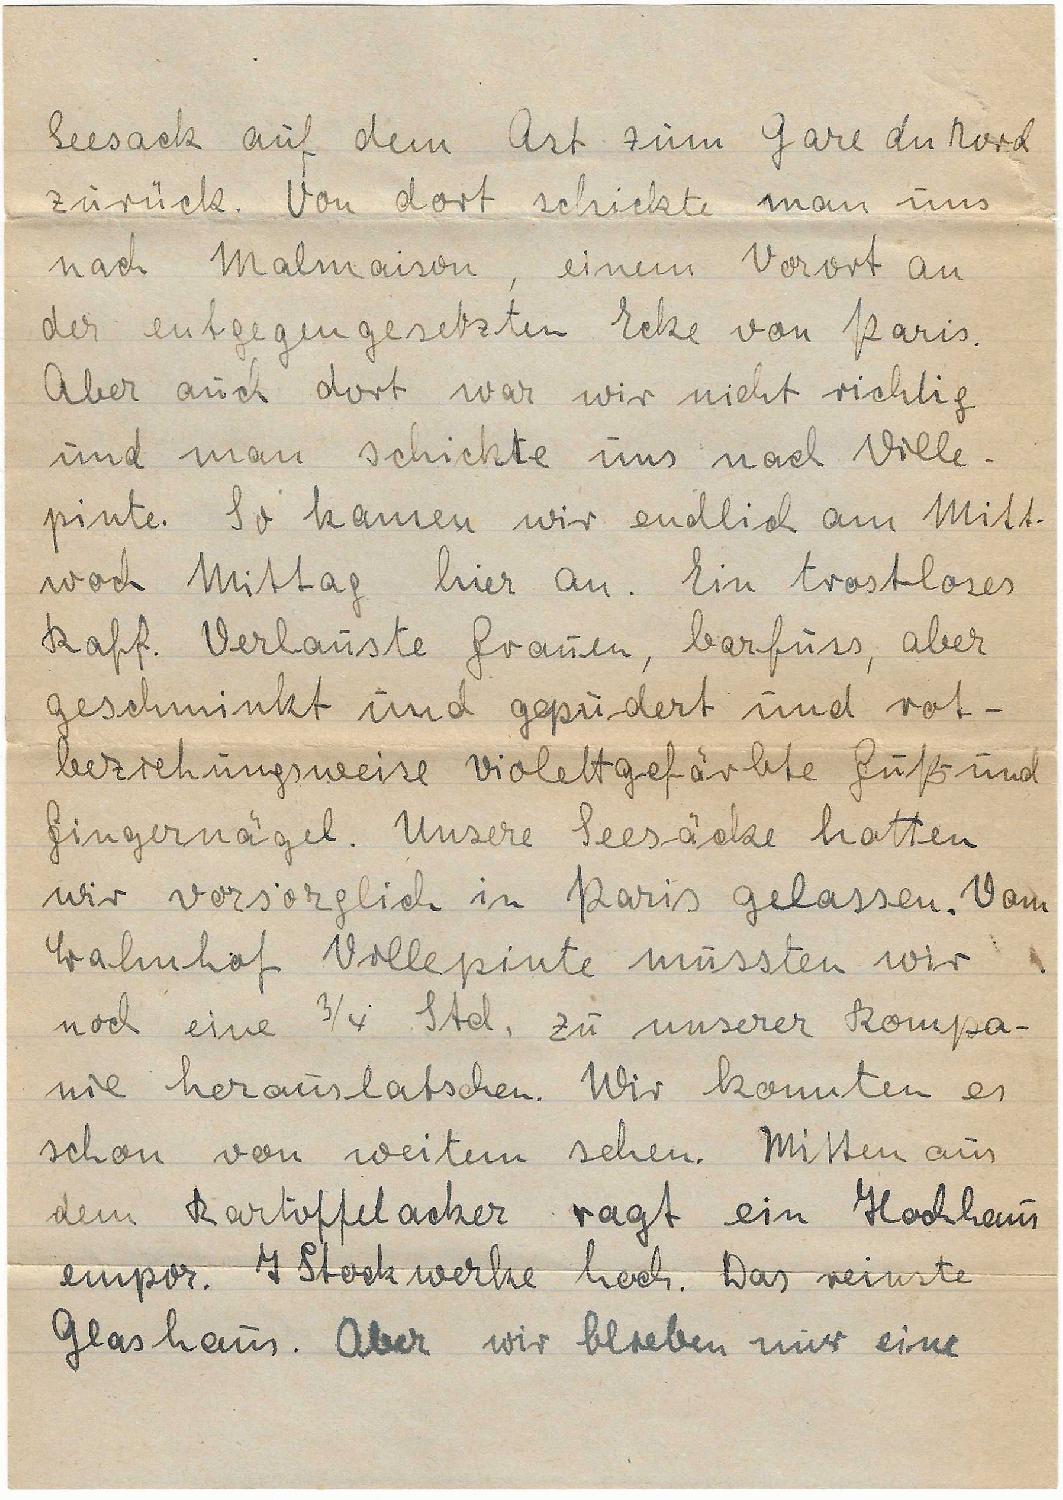 Seesack auf dem Ast zum Gare du Nord
zurück. Von dort schickte man uns
nach Malmaison, einem Vorort an
der entgegengesetzten Ecke von Paris.
Aber auch dort war wir nicht richtig
und man schickte uns nach Ville-
pinte. So kamen wir endlich am Mitt-
woch Mittag hier an. Ein trostloses
Kaff. Verlauste Frauen, barfuss, aber
geschminkt und gepudert und rot-
beziehungsweise violettgefärbte Fuß- und
Fingernägel. Unsere Seesäcke hatten
wir vorsorglich in Paris gelassen. Vom
Bahnhof Villepinte mussten wir
noch eine 3/4 Std. zu unserer Kompa-
nie herauslatschen. Wir konnten es
schon von weitem sehen. Mitten aus
dem Kartoffelacker ragt ein Hochhaus
empor. 7 Stockwerke hoch. Das reinste
Glashaus. Aber wir blieben nur eine